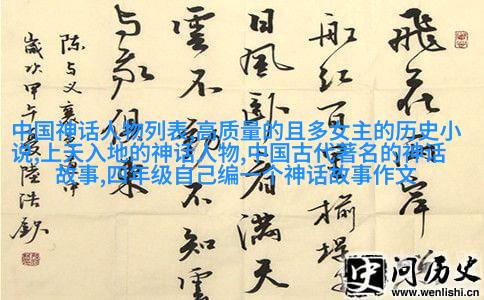 飛花兩岸
船紅百里榆堤
日風卧看滿天
雲不動不知雲
与我俱東
陈与义襄邑道中
歲次甲午夏陸浩欽
中国神话人物列表,高质量的且多女主的历史小
说,上天入地的神话人物,中国古代著名的神话
故事,四年级自己编一个神话故事作文
史问历史
www.wenlishi.cn